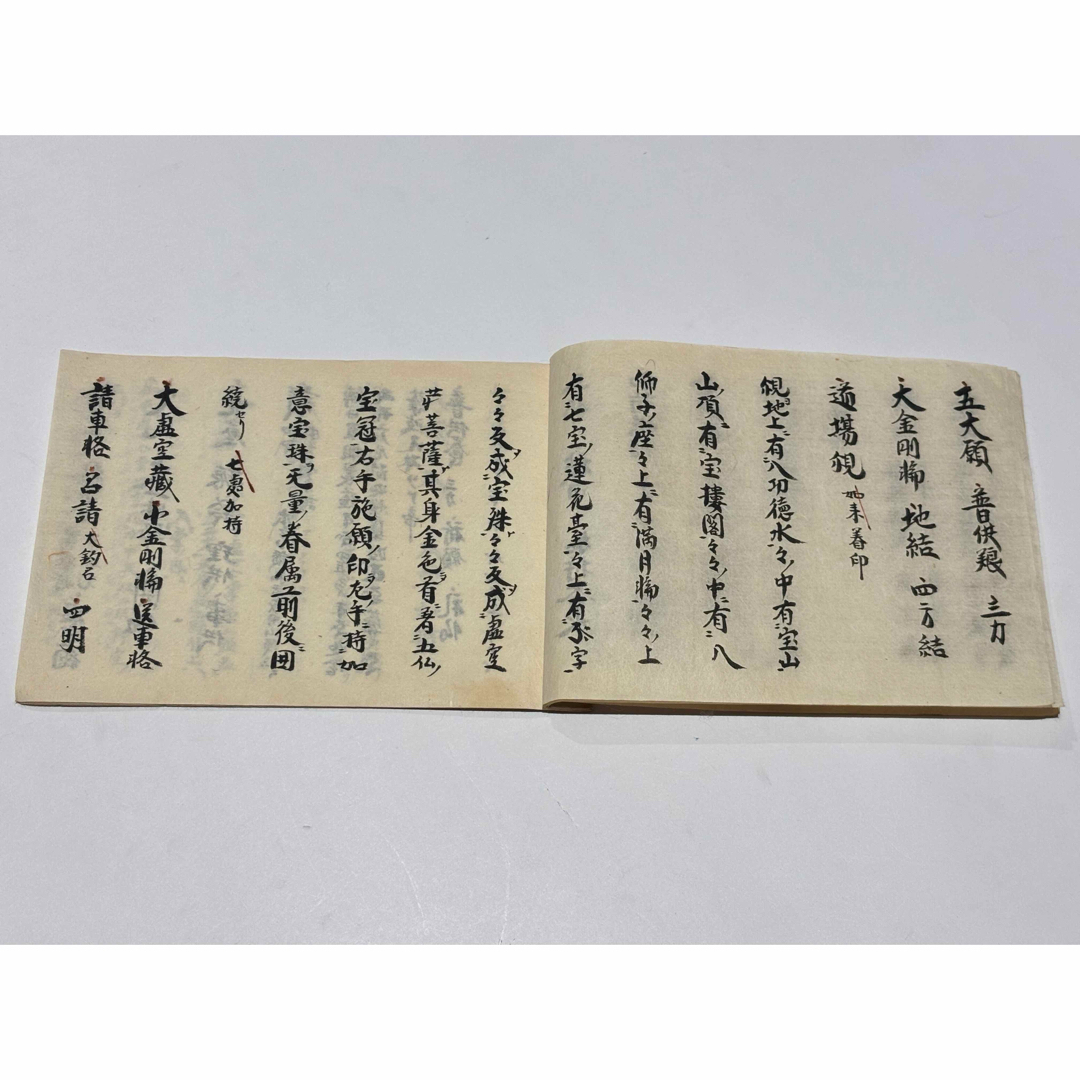 五大願 普供養 三力
大金剛輪 地結 四方結
道場観 如来拳印
観地上有八功徳水々中有宝山
山頂有宝楼閣々中有八
師子座々上有満月輪々上
有七宝蓮花臺々上有字
々々反成宝珠々々反成虚空
菩薩其身金色首著五仏
宝冠右手施願印左手持如
意宝珠无量眷属前後囲
繞セリ 七處加持
大虚空蔵 小金剛輪 送車輅
請車輅 召請 大鈎召 四明